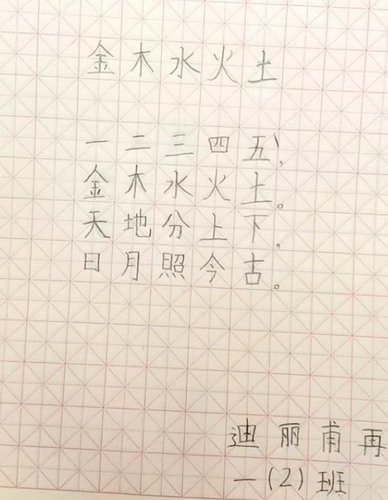 金木水火土
一二三四五，
金木水火土。
天地分上下，
日月照今古。
迪丽甫再
一(2)班